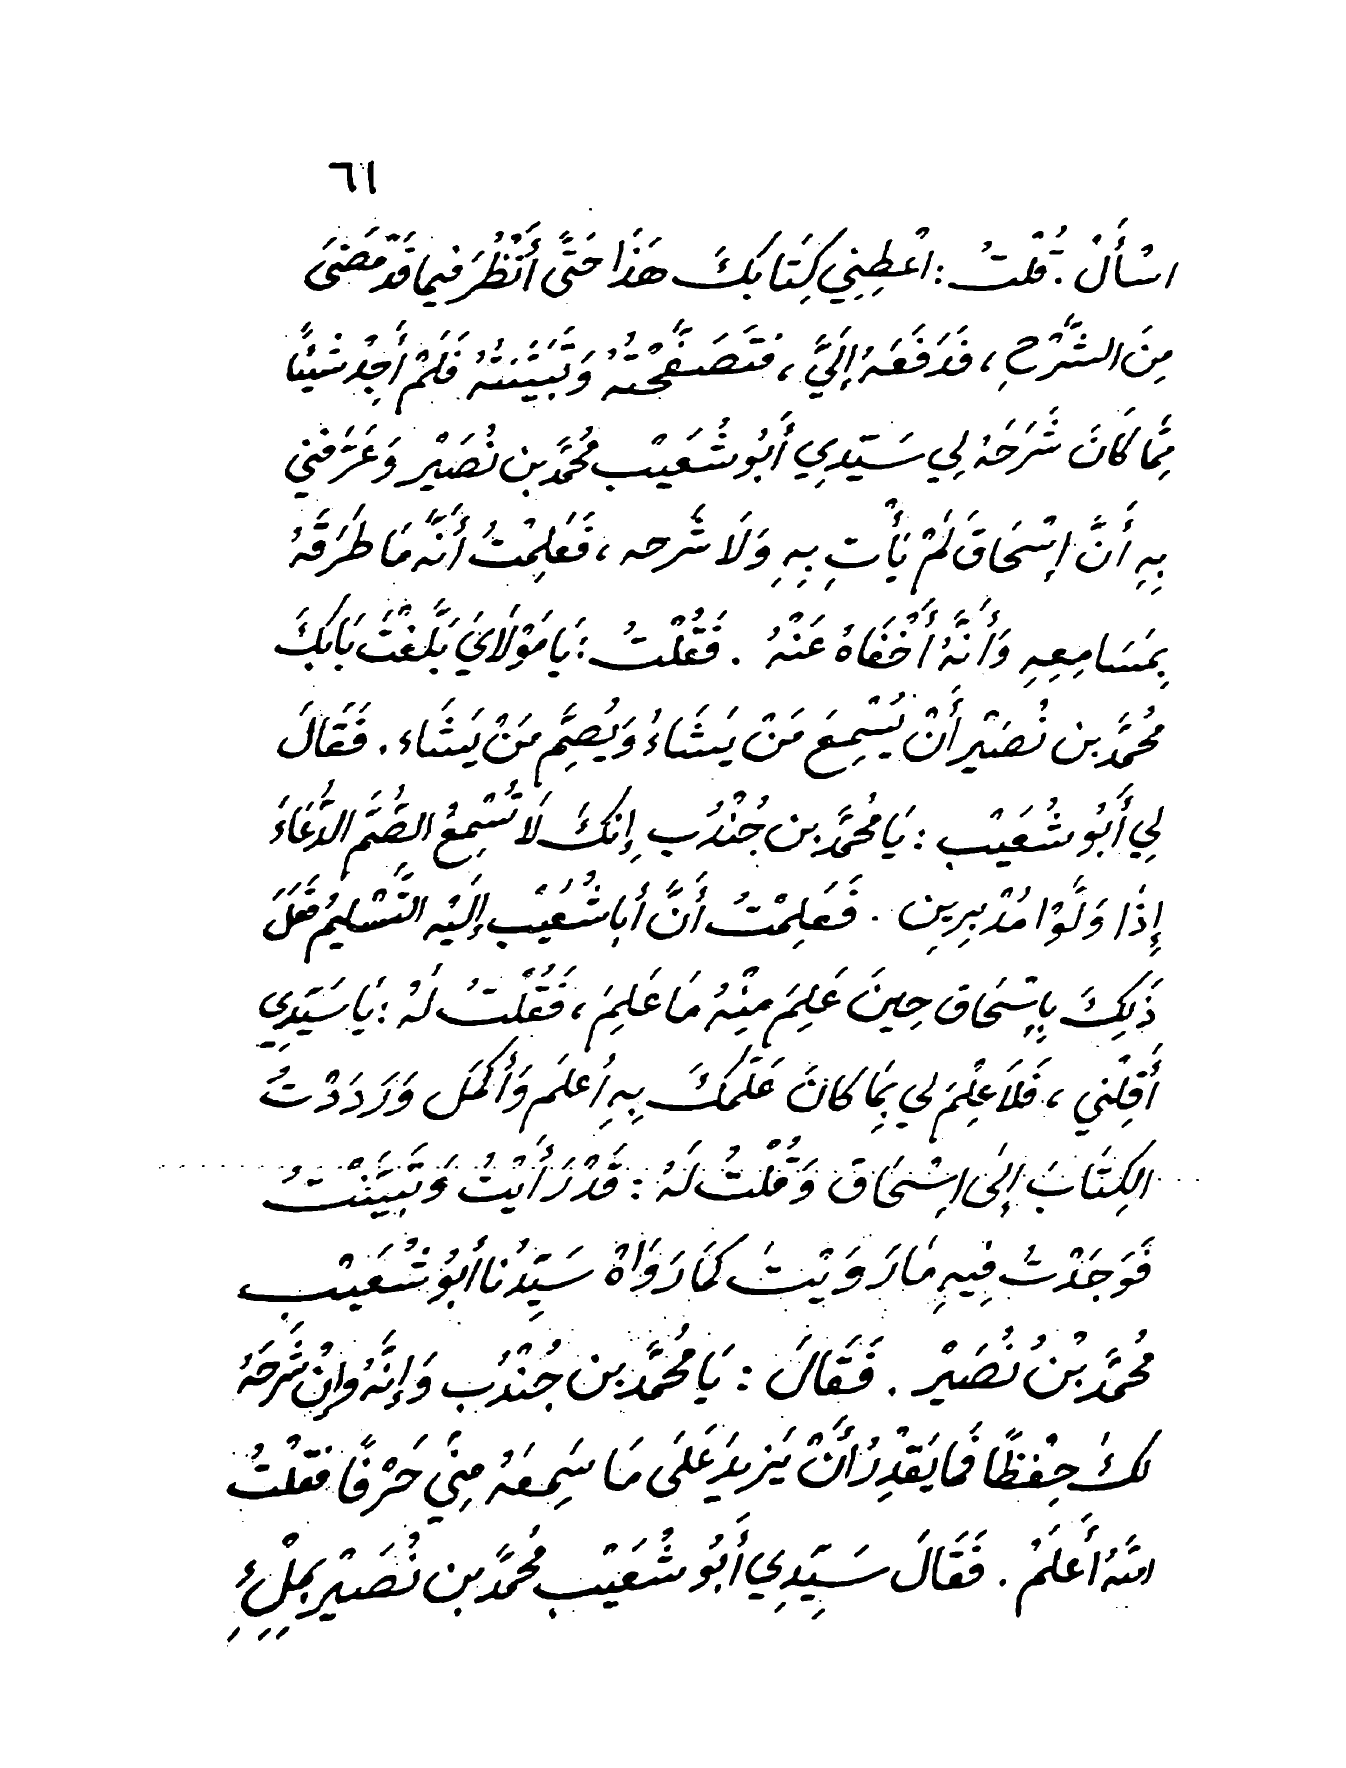 ٦١
اسْأَلْ . قُلْتُ : اعْطِنِي كِتَابَكَ هَذَا حَتَّى أَنْظُرَ فيما قَدْ مَضَى
مِنَ الشَّرْحِ ، فَدَفَعَهُ إِلَيَّ ، فَتَصَفَّحْتُهُ وَتَبَيَّنْتُهُ فَلَمْ أَجِدْ شَيْئًا
مِمَّا كَانَ شَرَحَهُ لِي سَيِّدِي أَبُو شُعَيْب مُحَمَّد بن نُصَيْر وَعَرَّفَنِي
بِهِ أَنَّ إِسْحَاقَ لَمْ يَأْتِ بِهِ وَلَا شَرحه ، فَعَلِمْتُ أَنَّه مَا طَرَقَهُ
بِمَسَامِعِهِ وَأَنَّهُ أَخْفَاهُ عَنْهُ . فَقُلْتُ : يَا مَوْلَايَ بَلَغْتَ بَابَكَ
مُحَمَّد بن نُصَيْر أَنْ يُسْمِعَ مَنْ يَشَاءُ وَيُصِمَّ مَنْ يَشَاء . فَقَالَ
لِي أَبُو شُعَيْب : يَا مُحَمَّد بن جُنْدُب إِنكَ لَا تُسْمِعُ الصُّمَّ الدُّعَاءَ
إِذَا وَلَّوْا مُدْبِرِين . فَعَلِمْتُ أَنَّ أبا شُعَيْب إِلَيْهِ التَّسْلِيمُ فَعَلَ
ذَلِكَ بِإِسْحَاق حِينَ عَلِمَ مِنْهُ مَا عَلِمَ ، فَقُلْتُ لَهُ : يَا سَيِّدِي
أَقِلْنِي ، فَلَا عِلْمَ لي بِمَا كَانَ عَلَّمَكَ بِهِ أعلَم وَأَكْمَل وَرَدَدْتُ
الكِتَابَ إِلَى إِسْحَاق وَقُلْتُ لَهُ : قَدْ رَأَيْتُ وَتَبَيَّنْتُ
فَوَجَدْتُ فِيهِ مَا رَوَيْتَ كَمَا رَوَاهُ سَيِّدُنا أَبُو شُعَيْب
مُحَمَّد بْنُ نُصَيْر . فَقَالَ : يَا مُحَمَّد بن جُنْدُب وَإِنَّهُ وإنْ شَرَحَهُ
لكَ حِفْظًا فَمَا يَقْدِرُ أَنْ يَزِيدَ عَلَى مَا سَمِعَهُ مِنِّي حَرْفًا فَقُلْتُ
اللهُ أَعلَمُ . فَقَالَ سَيِّدِي أَبُو شُعَيْب مُحَمَّد بن نُصَيْر بِمِلْءِ